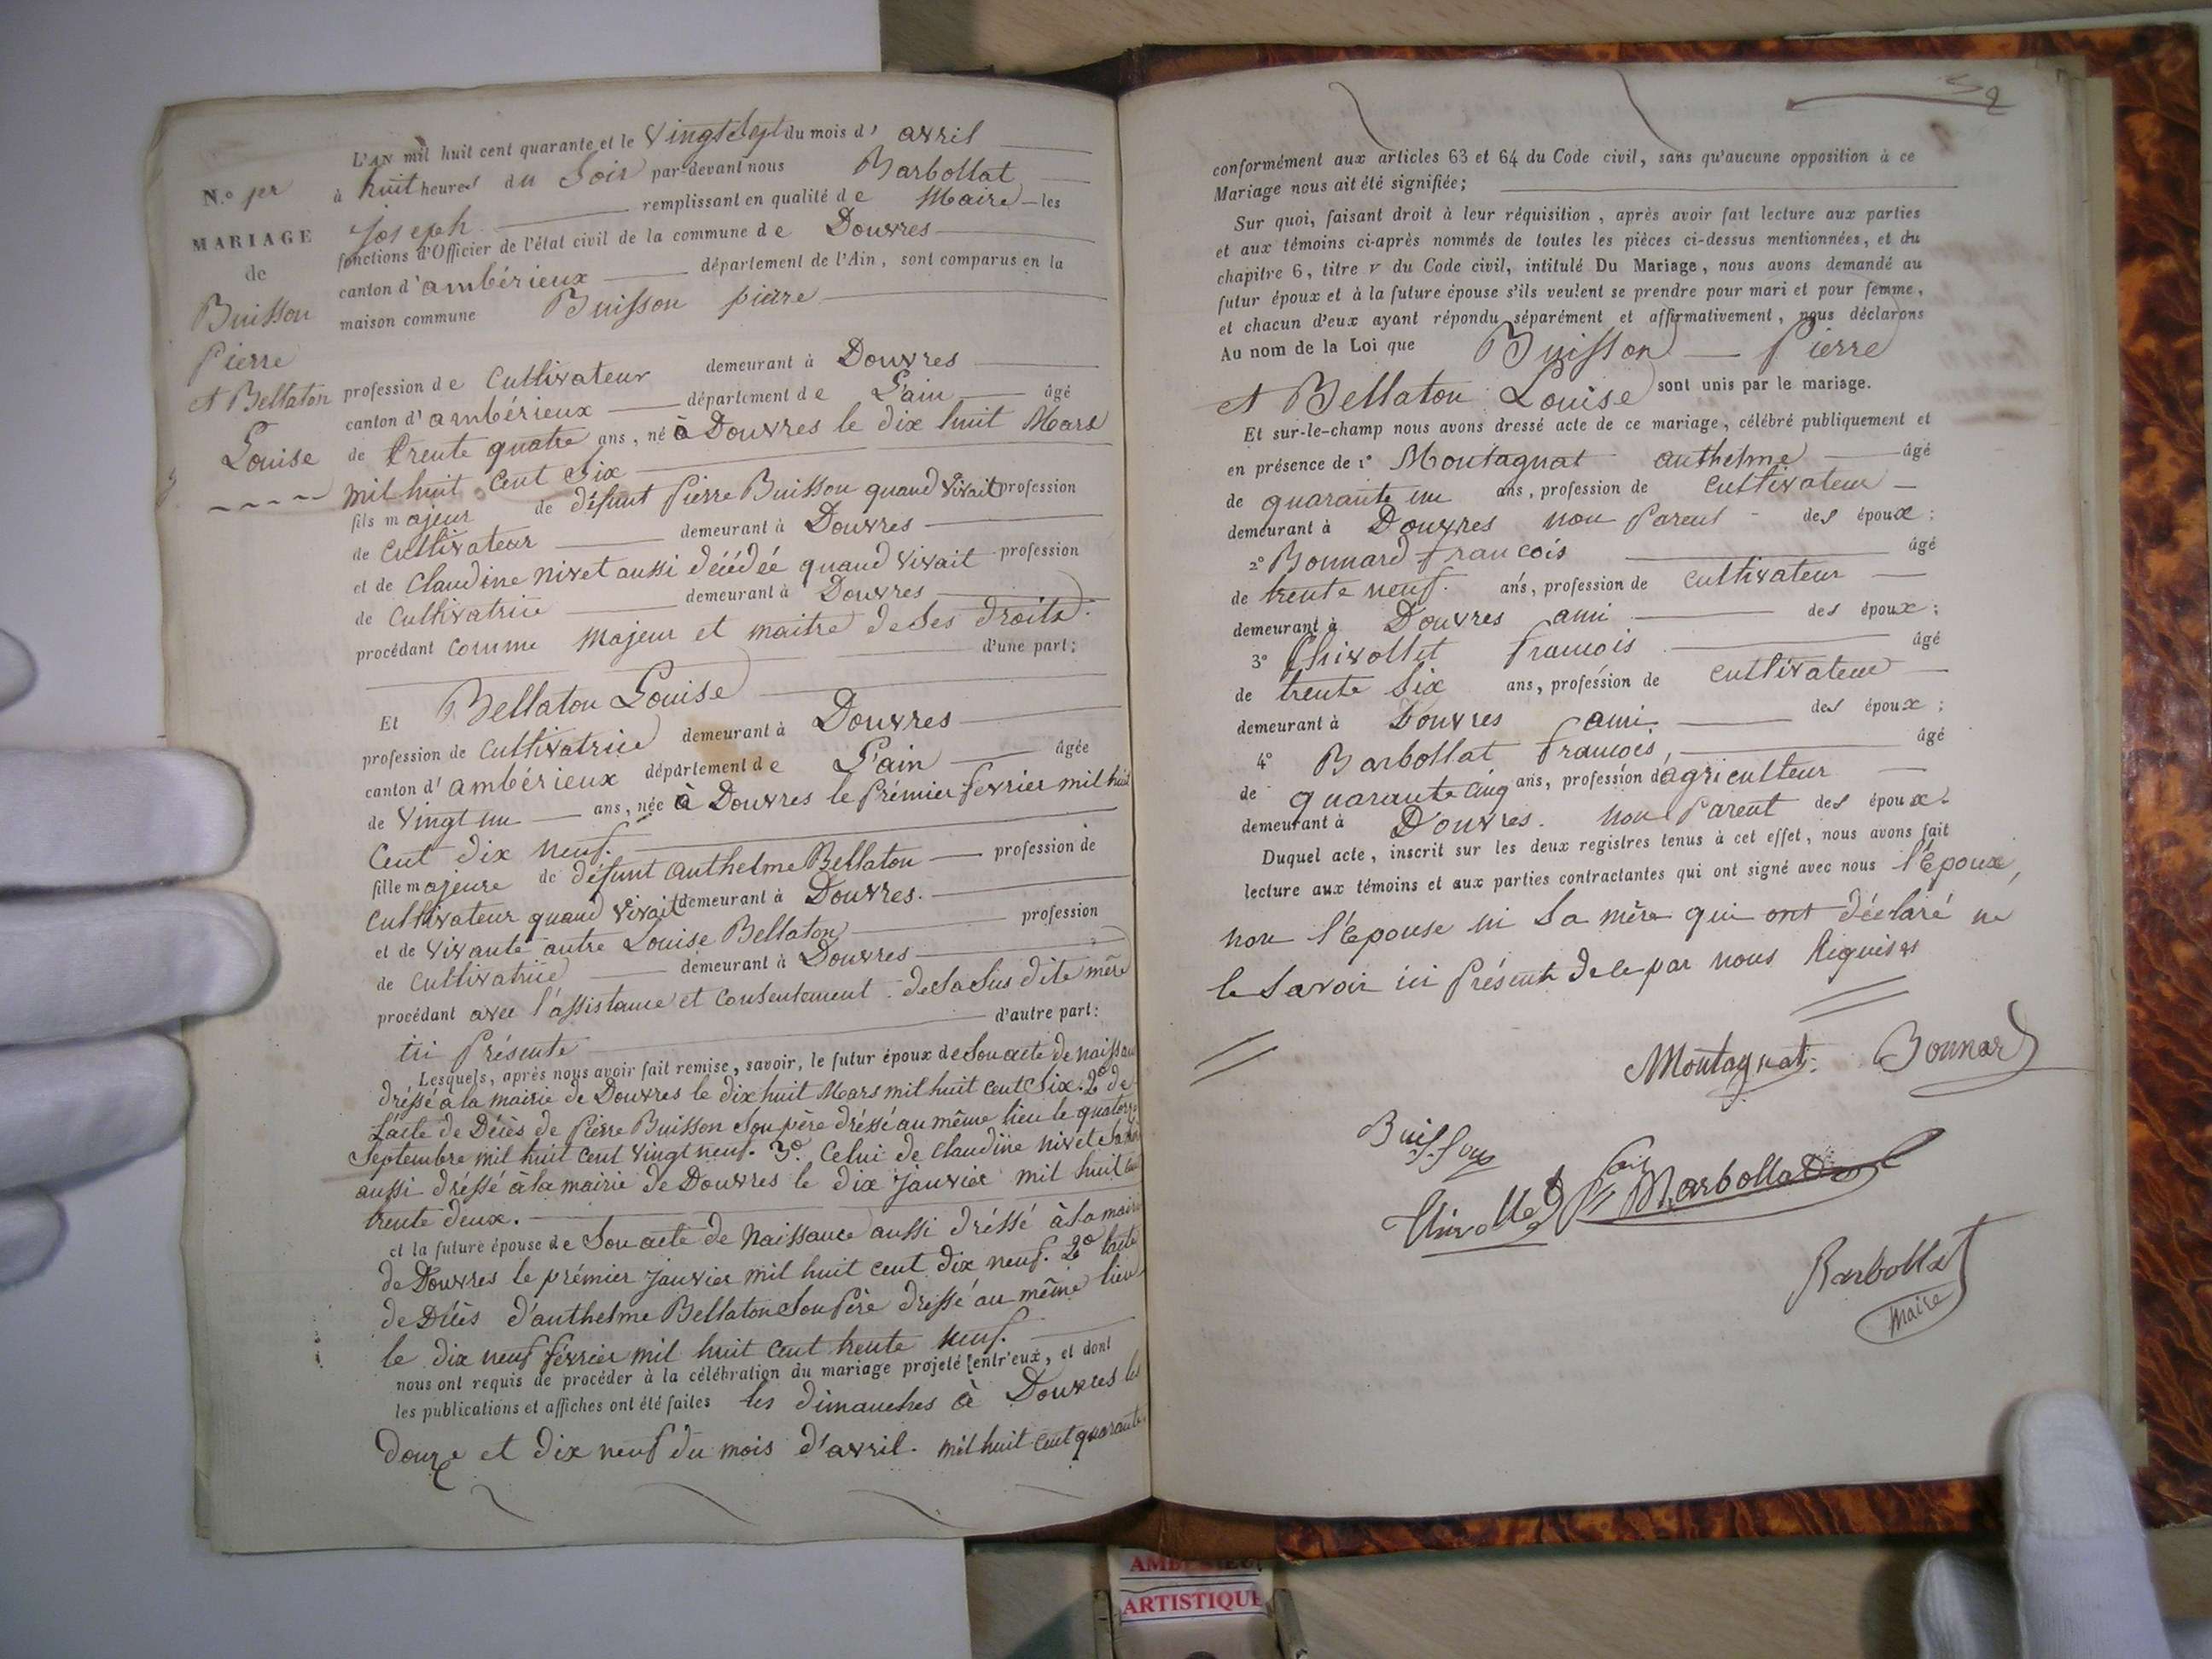 N.º 1er
MARIAGE
de
Buisson
Pierre
et Bellaton
Louise
L'AN mil huit cent quarante et le vingt sept du mois d' avril
à huit heures du soir par-devant nous Barbollat
joseph remplissant en qualité de Maire les
fonctions d'Officier de l'état civil de la commune de Douvres
canton d'ambérieux département de l'Ain, sont comparus en la
maison commune Buisson pierre
profession de Cultivateur demeurant à Douvres
canton d'ambérieux département de L'ain âgé
de trente quatre ans, né à Douvres le dix huit Mars
mil huit Cent Six
fils majeur de défunt Pierre Buisson quand vivait profession
de Cultivateur demeurant à Douvres
et de Claudine nivet aussi décédée quand vivait profession
de Cultivatrice demeurant à Douvres
procédant comme Majeur et maitre de ses droits.
d'une part;
Et Bellaton Louise
profession de Cultivatrice demeurant à Douvres
canton d'ambérieux département de L'ain âgée
de vingt un ans, née à Douvres le prémier fevrier mil huit
Cent dix neuf.
fille majeure de défunt authelme Bellaton profession de
Cultivateur quand vivait demeurant à Douvres.
et de vivante autre Louise Bellaton profession
de Cultivatrice demeurant à Douvres
procédant avec l'assistance et consentement de sa sus dite mère
d'autre part:
ici Présente
Lesquels, après nous avoir fait remise, savoir, le futur époux de son acte de naissance
dréssé à la mairie de Douvres le dix huit Mars mil huit cent six. 2º de
L'acte de Décès de Pierre Buisson Son père dréssé au même lieu le quatorze
Septembre mil huit cent vingt neuf. 3º. Celui de Claudine nivet sa
aussi dréssé à la mairie de Douvres le dix janvier mil huit
trente deux.
et la future épouse de Son acte de Naissance aussi dréssé à la mairie
de Douvres le prémier janvier mil huit cent dix neuf. 2º l'acte
de Décès d'authelme Bellaton Son Père dressé au même lieu
le dix neuf février mil huit cent trente neuf.
nous ont requis de procéder à la célébration du mariage projeté entr'eux, et dont
les publications et affiches ont été faites les dimanches à Douvres les
douze et dix neuf du mois d'avril. mil huit cent quarante
2
conformément aux articles 63 et 64 du Code civil, sans qu'aucune opposition à ce
Mariage nous ait été signifiée;
Sur quoi, faisant droit à leur réquisition, après avoir fait lecture aux parties
et aux témoins ci-après nommés de toutes les pièces ci-dessus mentionnées, et du
chapitre 6, titre V du Code civil, intitulé Du Mariage, nous avons demandé au
futur époux et à la future épouse s'ils veulent se prendre pour mari et pour femme,
et chacun d'eux ayant répondu séparément et affirmativement, nous déclarons
Au nom de la Loi que Buisson Pierre
et Bellaton Louise sont unis par le mariage.
Et sur-le-champ nous avons dressé acte de ce mariage, célébré publiquement et
en présence de 1º Montagnat authelme âgé
de quarante un ans, profession de Cultivateur
demeurant à Douvres non Parent des époux;
2º Bonnard francois âgé
de trente neuf. ans, profession de Cultivateur
demeurant à Douvres ami des époux;
3º Thivollet francois âgé
de trente Six ans, profession de Cultivateur
demeurant à Douvres ami des époux;
4º Barbollat francois, âgé
de quarante cinq ans, profession d'agriculteur
demeurant à Douvres. non Parent des époux.
Duquel acte, inscrit sur les deux registres tenus à cet effet, nous avons fait
lecture aux témoins et aux parties contractantes qui ont signé avec nous l'Epoux,
non l'Epouse ni Sa mère qui ont déclaré ne
le Savoir ici Présente de le par nous Requises
Montagnat. Bonnard
Buisson
Thivollet fois Barbollat
Barbollat
Maire
ARTISTIQUE